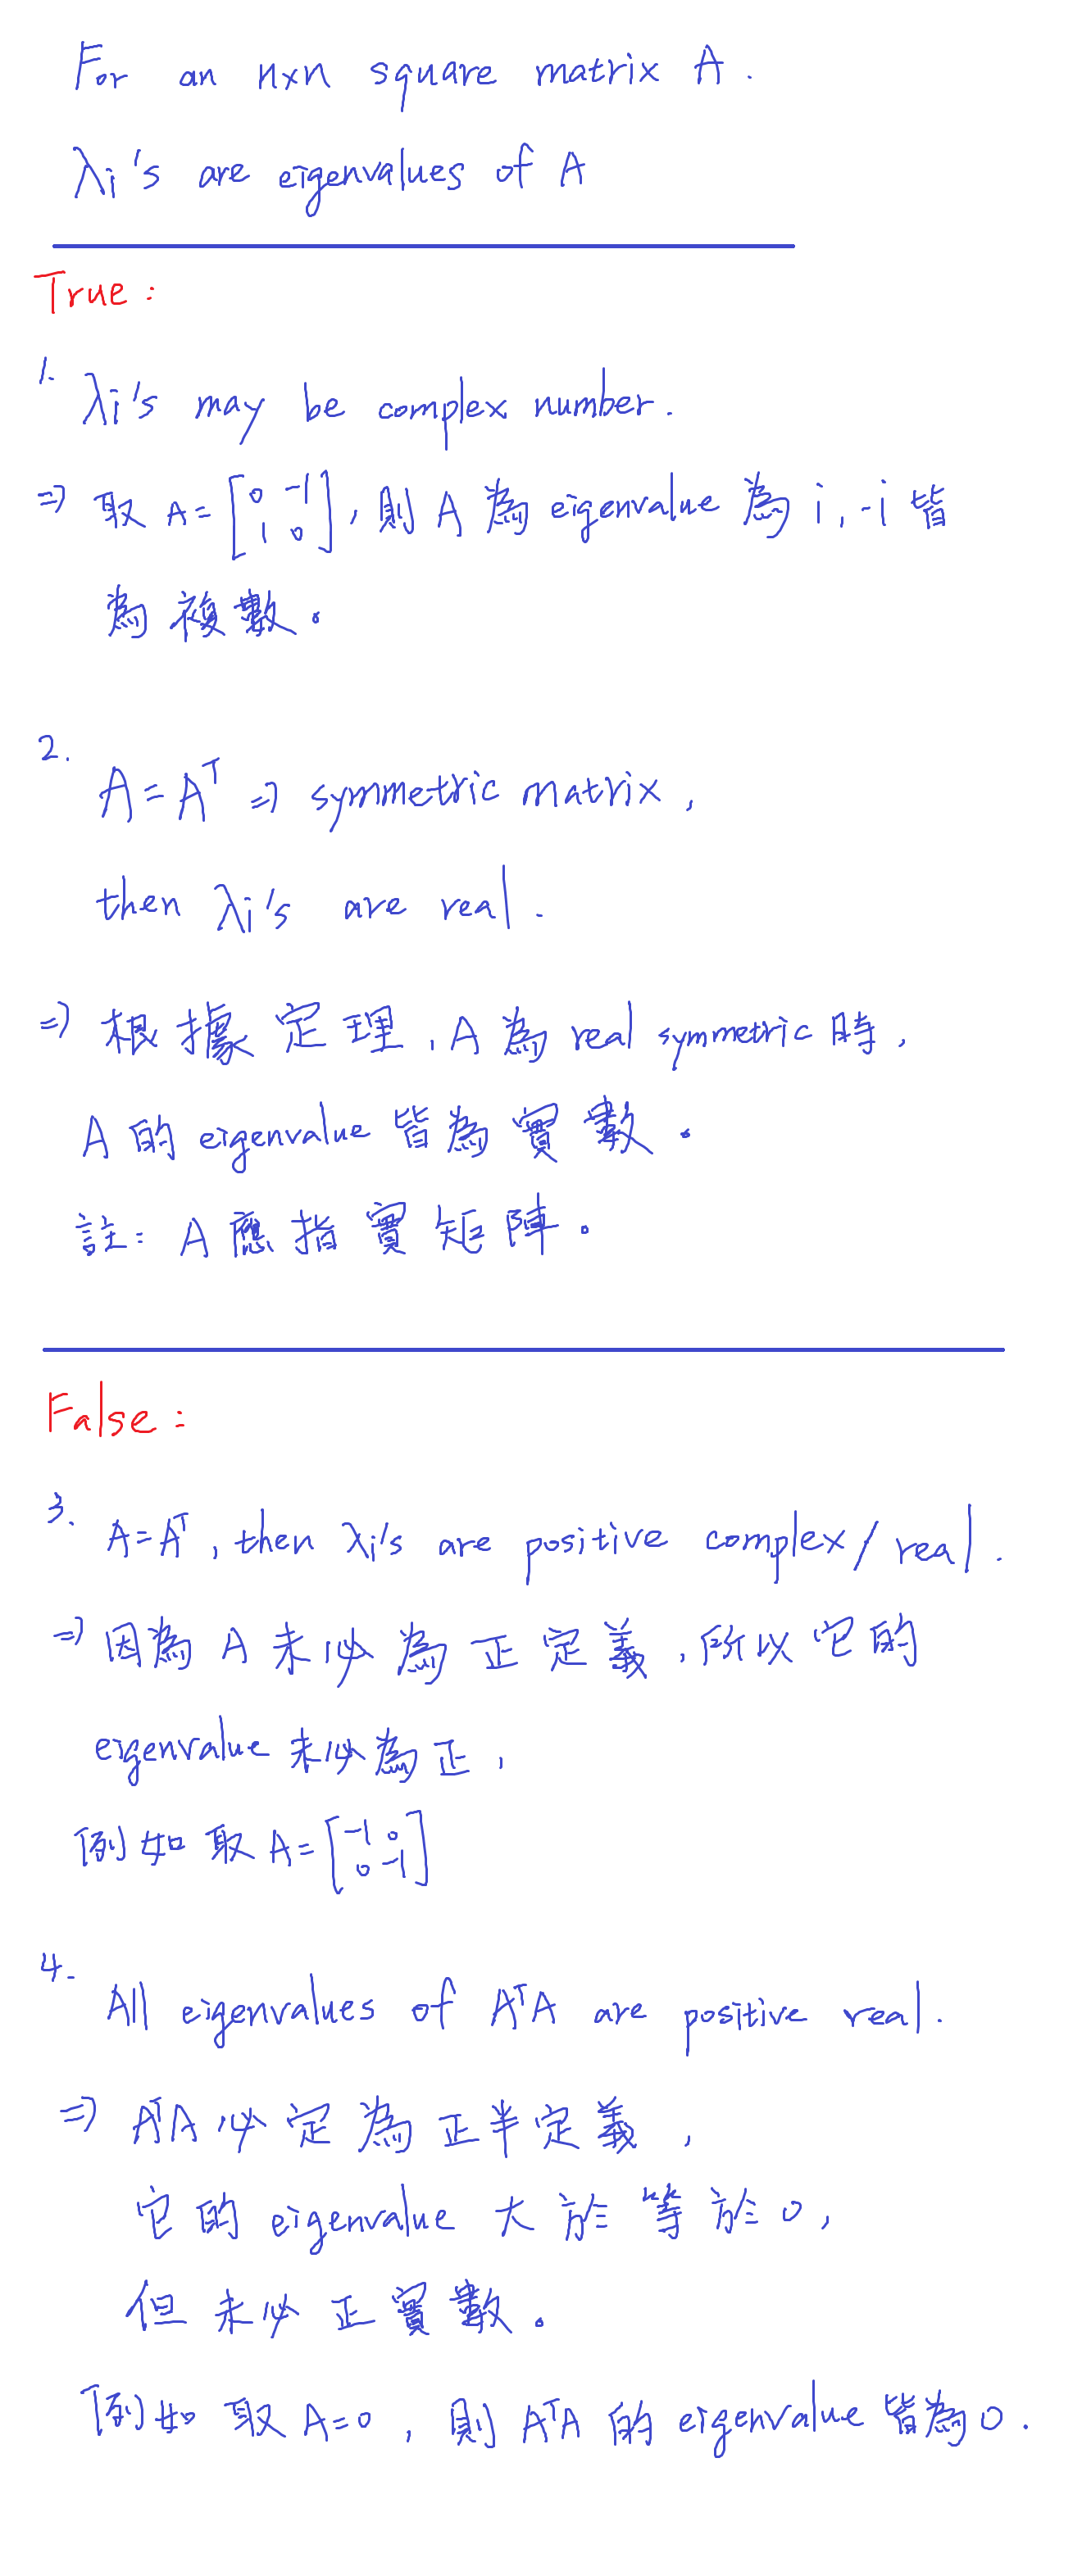 For an n×n square matrix A.
λi's are eigenvalues of A
True:
1. λi's may be complex number.
⇒ 取 A = [0 -1; 1 0], 則 A 為 eigenvalue 為 i, -i 皆
為複數。
2. A = A^T ⇒ symmetric matrix,
then λi's are real.
⇒ 根據定理, A 為 real symmetric 時,
A 的 eigenvalue 皆為實數。
註: A 應指實矩陣。
False:
3. A = A^T, then λi's are positive complex/real.
⇒ 因為 A 未必為正定義, 所以它的
eigenvalue 未必為正,
例如取 A = [-1 0; 0 -1]
4. All eigenvalues of A^TA are positive real.
⇒ A^TA 必定為正半定義,
它的 eigenvalue 大於等於 0,
但未必正實數。
例如取 A=0, 則 A^TA 的 eigenvalue 皆為 0.